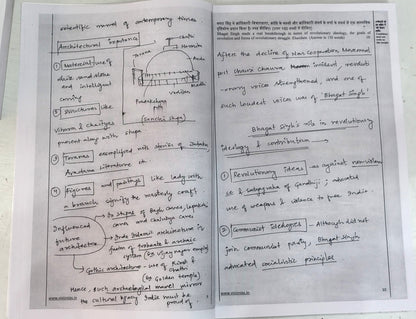 scientific marvel of contemporary times.
Architectural importance
① Material use of
dark sand stone
and intelligent
carving
② Structures like
Viharas & chaityas
present along with stupa
Torana
chatri
Harmika
Anda
Medhi
vedika
Pradakshina
path
(Sanchi stupa)
③ Toranas exemplified with stories of Jataka,
Avadana literature etc.
④ Figures and paintings like lady with
a branch signify the masterly craft.
Influenced
future
architecture
→ In steps of Bagh caves, Lepakshi
caves and chaitya caves
→ Indo Islamic architecture in
fusion of trabeate & arcuate
system (Eg Vijaynagar empire)
→ Gothic architecture - use of Kiosk &
chatri
(Eg Golden temple)
Hence, such archeological marvel mirrors
the cultural legacy India must be
proud of.
www.visionias.in
Bhagat Singh made a real breakthrough in terms of revolutionary ideology, the goals of
revolution and forms of revolutionary struggle. Examine. (Answer in 150 words)
After the decline of Non Cooperation Movement
post Chaura Chaura incident, revoluti
-onary voice strengthened, and one of
such loudest voice was of Bhagat Singh.
Bhagat Singh's role in revolutionary
ideology & contribution
① Revolutionary ideas - as against nonviolen
ce & satyagraha of Gandhiji; advocated
use of weapons & violence to free India.
② Communist ideologies - Although did not
join communist party, Bhagat Singh
advocated socialistic principles
www.visionias.in